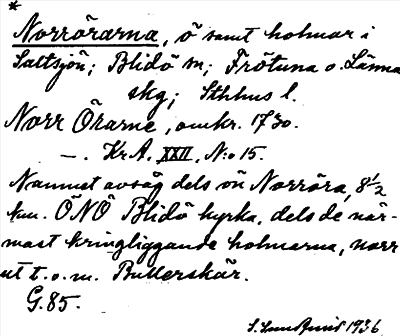 *
Norrörarna, ö samt holmar i
Saltsjön; Blidö sn; Frötuna o. Länna
skg; Sthlms l.
Norr Örarne, omkr. 1730.
—. Kr.A. XXII, N:o 15.
Namnet avsåg dels ön Norröra, 8 1/2
km. ÖNÖ Blidö kyrka, dels de när-
mast kringliggande holmarna, norr
ut t.o.m. Bullerskär.
G. 85.
1936